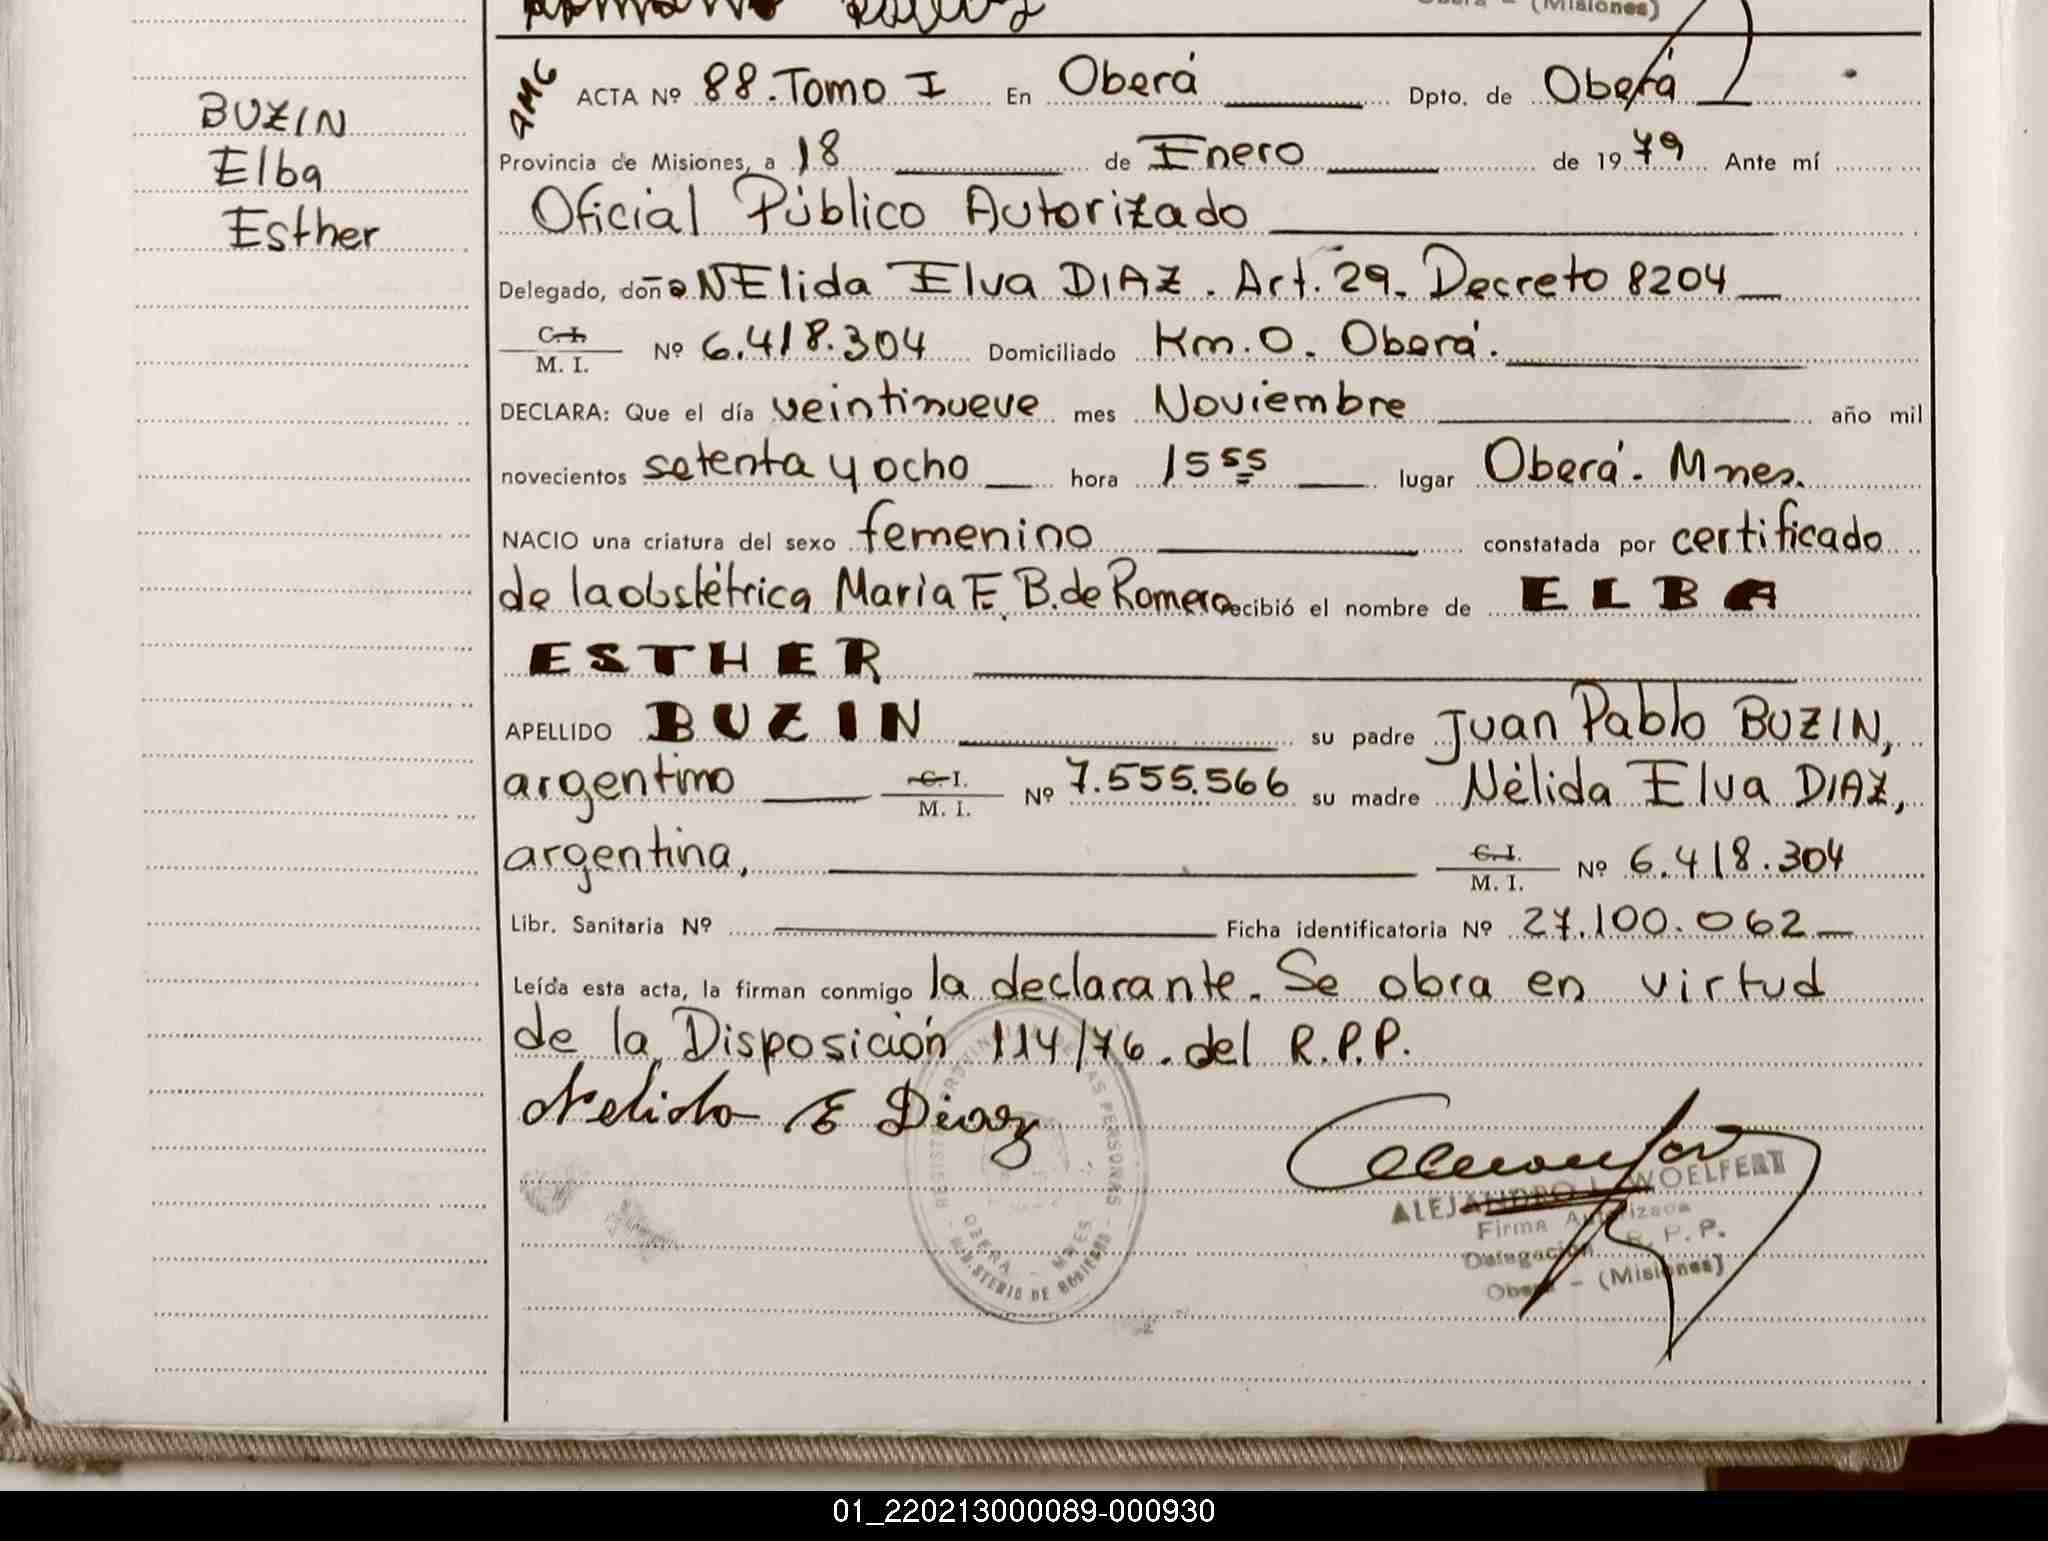 Oberá - (Misiones)
BUZIN
Elba
Esther
AMG
ACTA Nº 88. Tomo I En Oberá Dpto. de Oberá
Provincia de Misiones, a 18 de Enero de 1979 Ante mí
Oficial Público Autorizado
Delegado, doña NElida Elva DIAZ. Art. 29. Decreto 8204
C. I. / M. I. Nº 6.418.304 Domiciliado Km. 0. Oberá.
DECLARA: Que el día veintinueve mes Noviembre año mil
novecientos setenta y ocho hora 15 55 lugar Oberá. Mnes.
NACIO una criatura del sexo femenino constatada por certificado
de la obstétrica Maria E. B. de Romero recibió el nombre de ELBA
ESTHER
APELLIDO BUZIN su padre Juan Pablo BUZIN,
argentino C. I. / M. I. Nº 7.555.566 su madre Nélida Elva DIAZ,
argentina, C. I. / M. I. Nº 6.418.304
Libr. Sanitaria Nº Ficha identificatoria Nº 27.100.062
Leída esta acta, la firman conmigo la declarante. Se obra en virtud
de la Disposición 114/76. del R.P.P.
Nelida E Diaz
REGISTRO PROVINCIAL DE LAS PERSONAS
OBERA - MNES
MINISTERIO DE GOBIERNO
ALEJANDRO L. WOELFERT
Firma Autorizada
Delegación R. P. P.
Oberá - (Misiones)
01_220213000089-000930